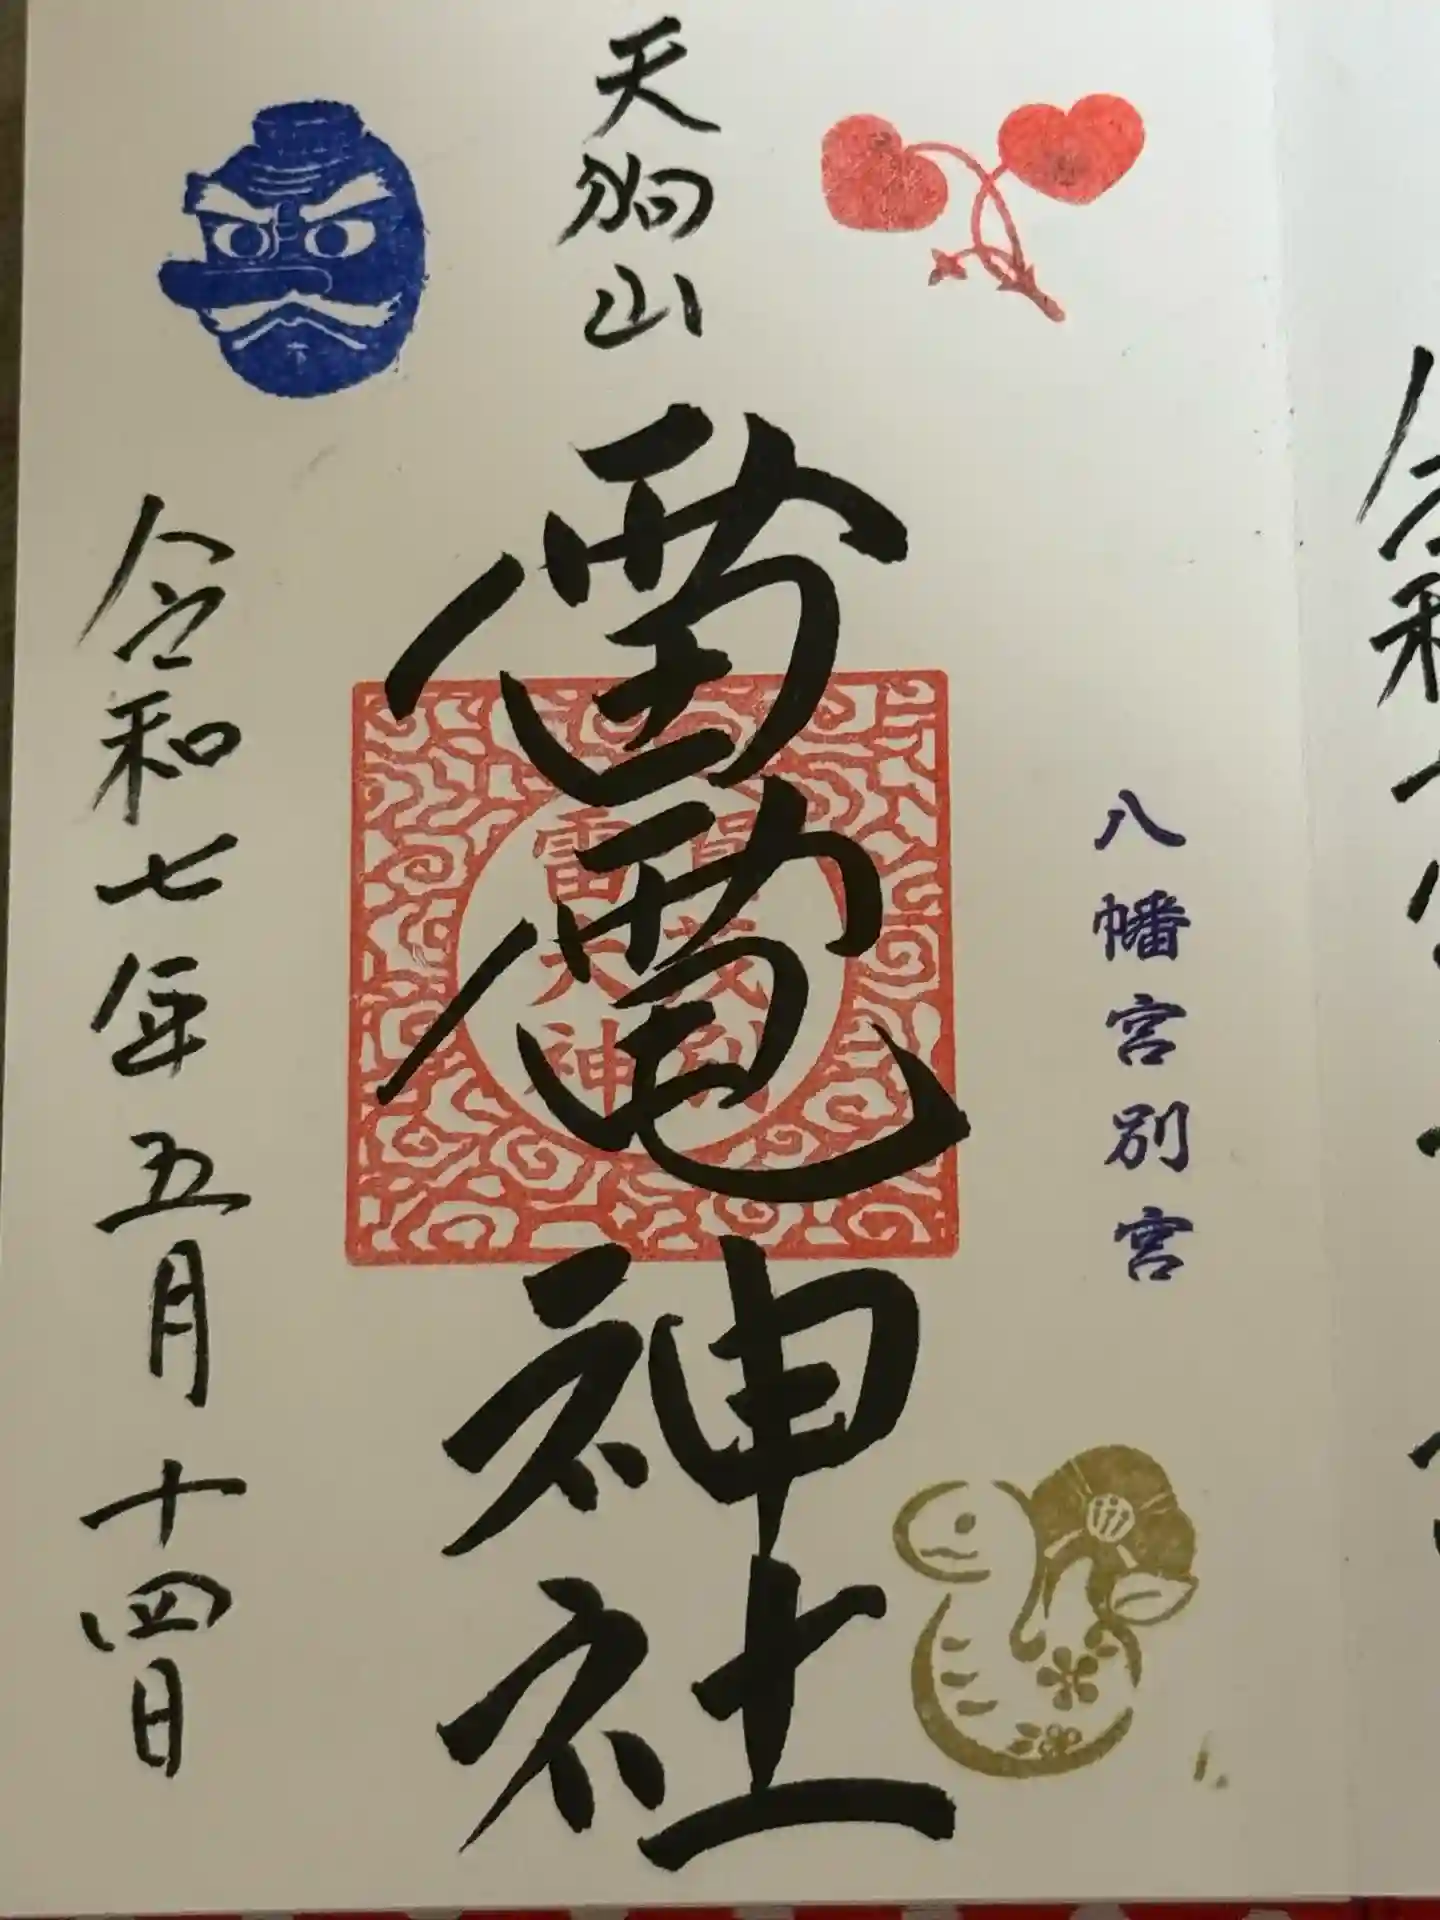 八幡宮別宮
天狗山
雷電神社
雷大神
令和七年五月十四日